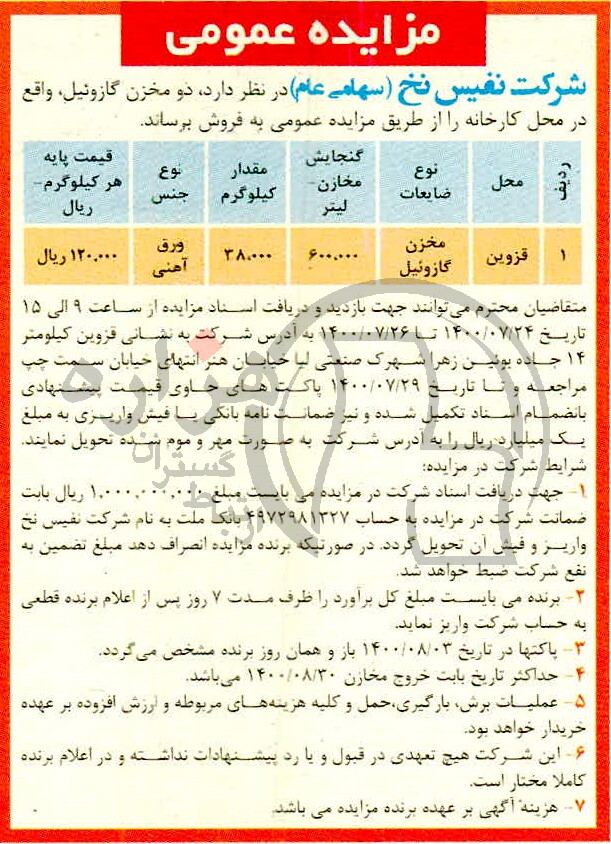 مزایده عمومی
شرکت نفیس نخ (سهامی عام) در نظر دارد، دو مخزن گازوئیل، واقع
در محل کارخانه را از طریق مزایده عمومی به فروش برساند.
ردیف محل نوع ضایعات گنجایش مخازن- لیتر مقدار کیلوگرم نوع جنس قیمت پایه هر کیلوگرم- ریال
۱ قزوین مخزن گازوئیل ۶۰۰.۰۰۰ ۳۸.۰۰۰ ورق آهنی ۱۲۰.۰۰۰ ریال
متقاضیان محترم می‌توانند جهت بازدید و دریافت اسناد مزایده از ساعت ۹ الی ۱۵
تاریخ ۱۴۰۰/۰۷/۲۴ تا ۱۴۰۰/۰۷/۲۶ به آدرس شرکت به نشانی قزوین کیلومتر
۱۴ جاده بوئین زهرا شهرک صنعتی لیا خیابان هنر انتهای خیابان سمت چپ
مراجعه و تا تاریخ ۱۴۰۰/۰۷/۲۹ پاکت های حاوی قیمت پیشنهادی
بانضمام اسناد تکمیل شده و نیز ضمانت نامه بانکی یا فیش واریزی به مبلغ
یک میلیارد ریال را به آدرس شرکت به صورت مهر و موم شده تحویل نمایند.
شرایط شرکت در مزایده:
۱- جهت دریافت اسناد شرکت در مزایده می بایست مبلغ ۱,۰۰۰,۰۰۰,۰۰۰ ریال بابت
ضمانت شرکت در مزایده به حساب ۴۹۷۳۹۸۱۳۲۷ بانک ملت به نام شرکت نفیس نخ
واریز و فیش آن تحویل گردد. در صورتیکه برنده مزایده انصراف دهد مبلغ تضمین به
نفع شرکت ضبط خواهد شد.
۲- برنده می بایست مبلغ کل برآورد را ظرف مدت ۷ روز پس از اعلام برنده قطعی
به حساب شرکت واریز نماید.
۳- پاکتها در تاریخ ۱۴۰۰/۰۸/۰۳ باز و همان روز برنده مشخص می‌گردد.
۴- حداکثر تاریخ بابت خروج مخازن ۱۴۰۰/۰۸/۳۰ می‌باشد.
۵- عملیات برش، بارگیری،حمل و کلیه هزینه‌های مربوطه و ارزش افزوده بر عهده
خریدار خواهد بود.
۶- این شرکت هیچ تعهدی در قبول و یا رد پیشنهادات نداشته و در اعلام برنده
کاملا مختار است.
۷- هزینه آگهی بر عهده برنده مزایده می باشد.
هزاره
گستران